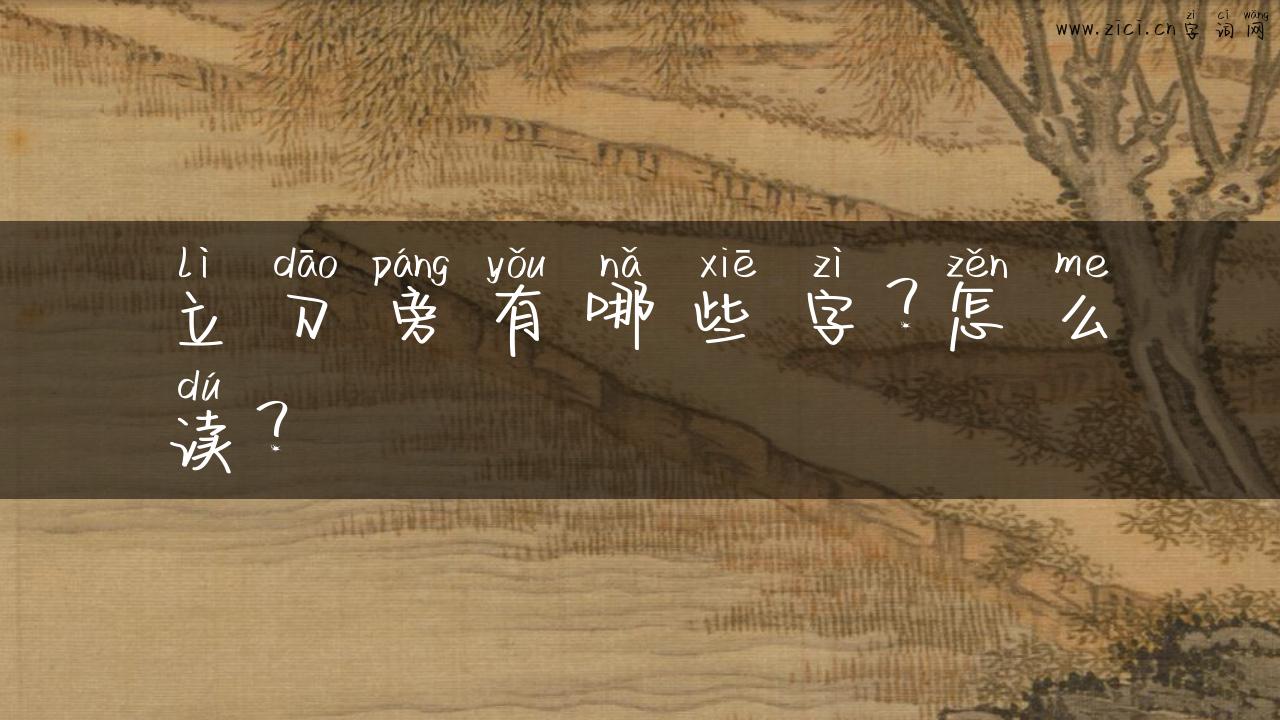 zì cí wǎng
www.zici.cn字词网
lì dāo páng yǒu nǎ xiē zì zěn me
立刀旁有哪些字?怎么
dú
读?